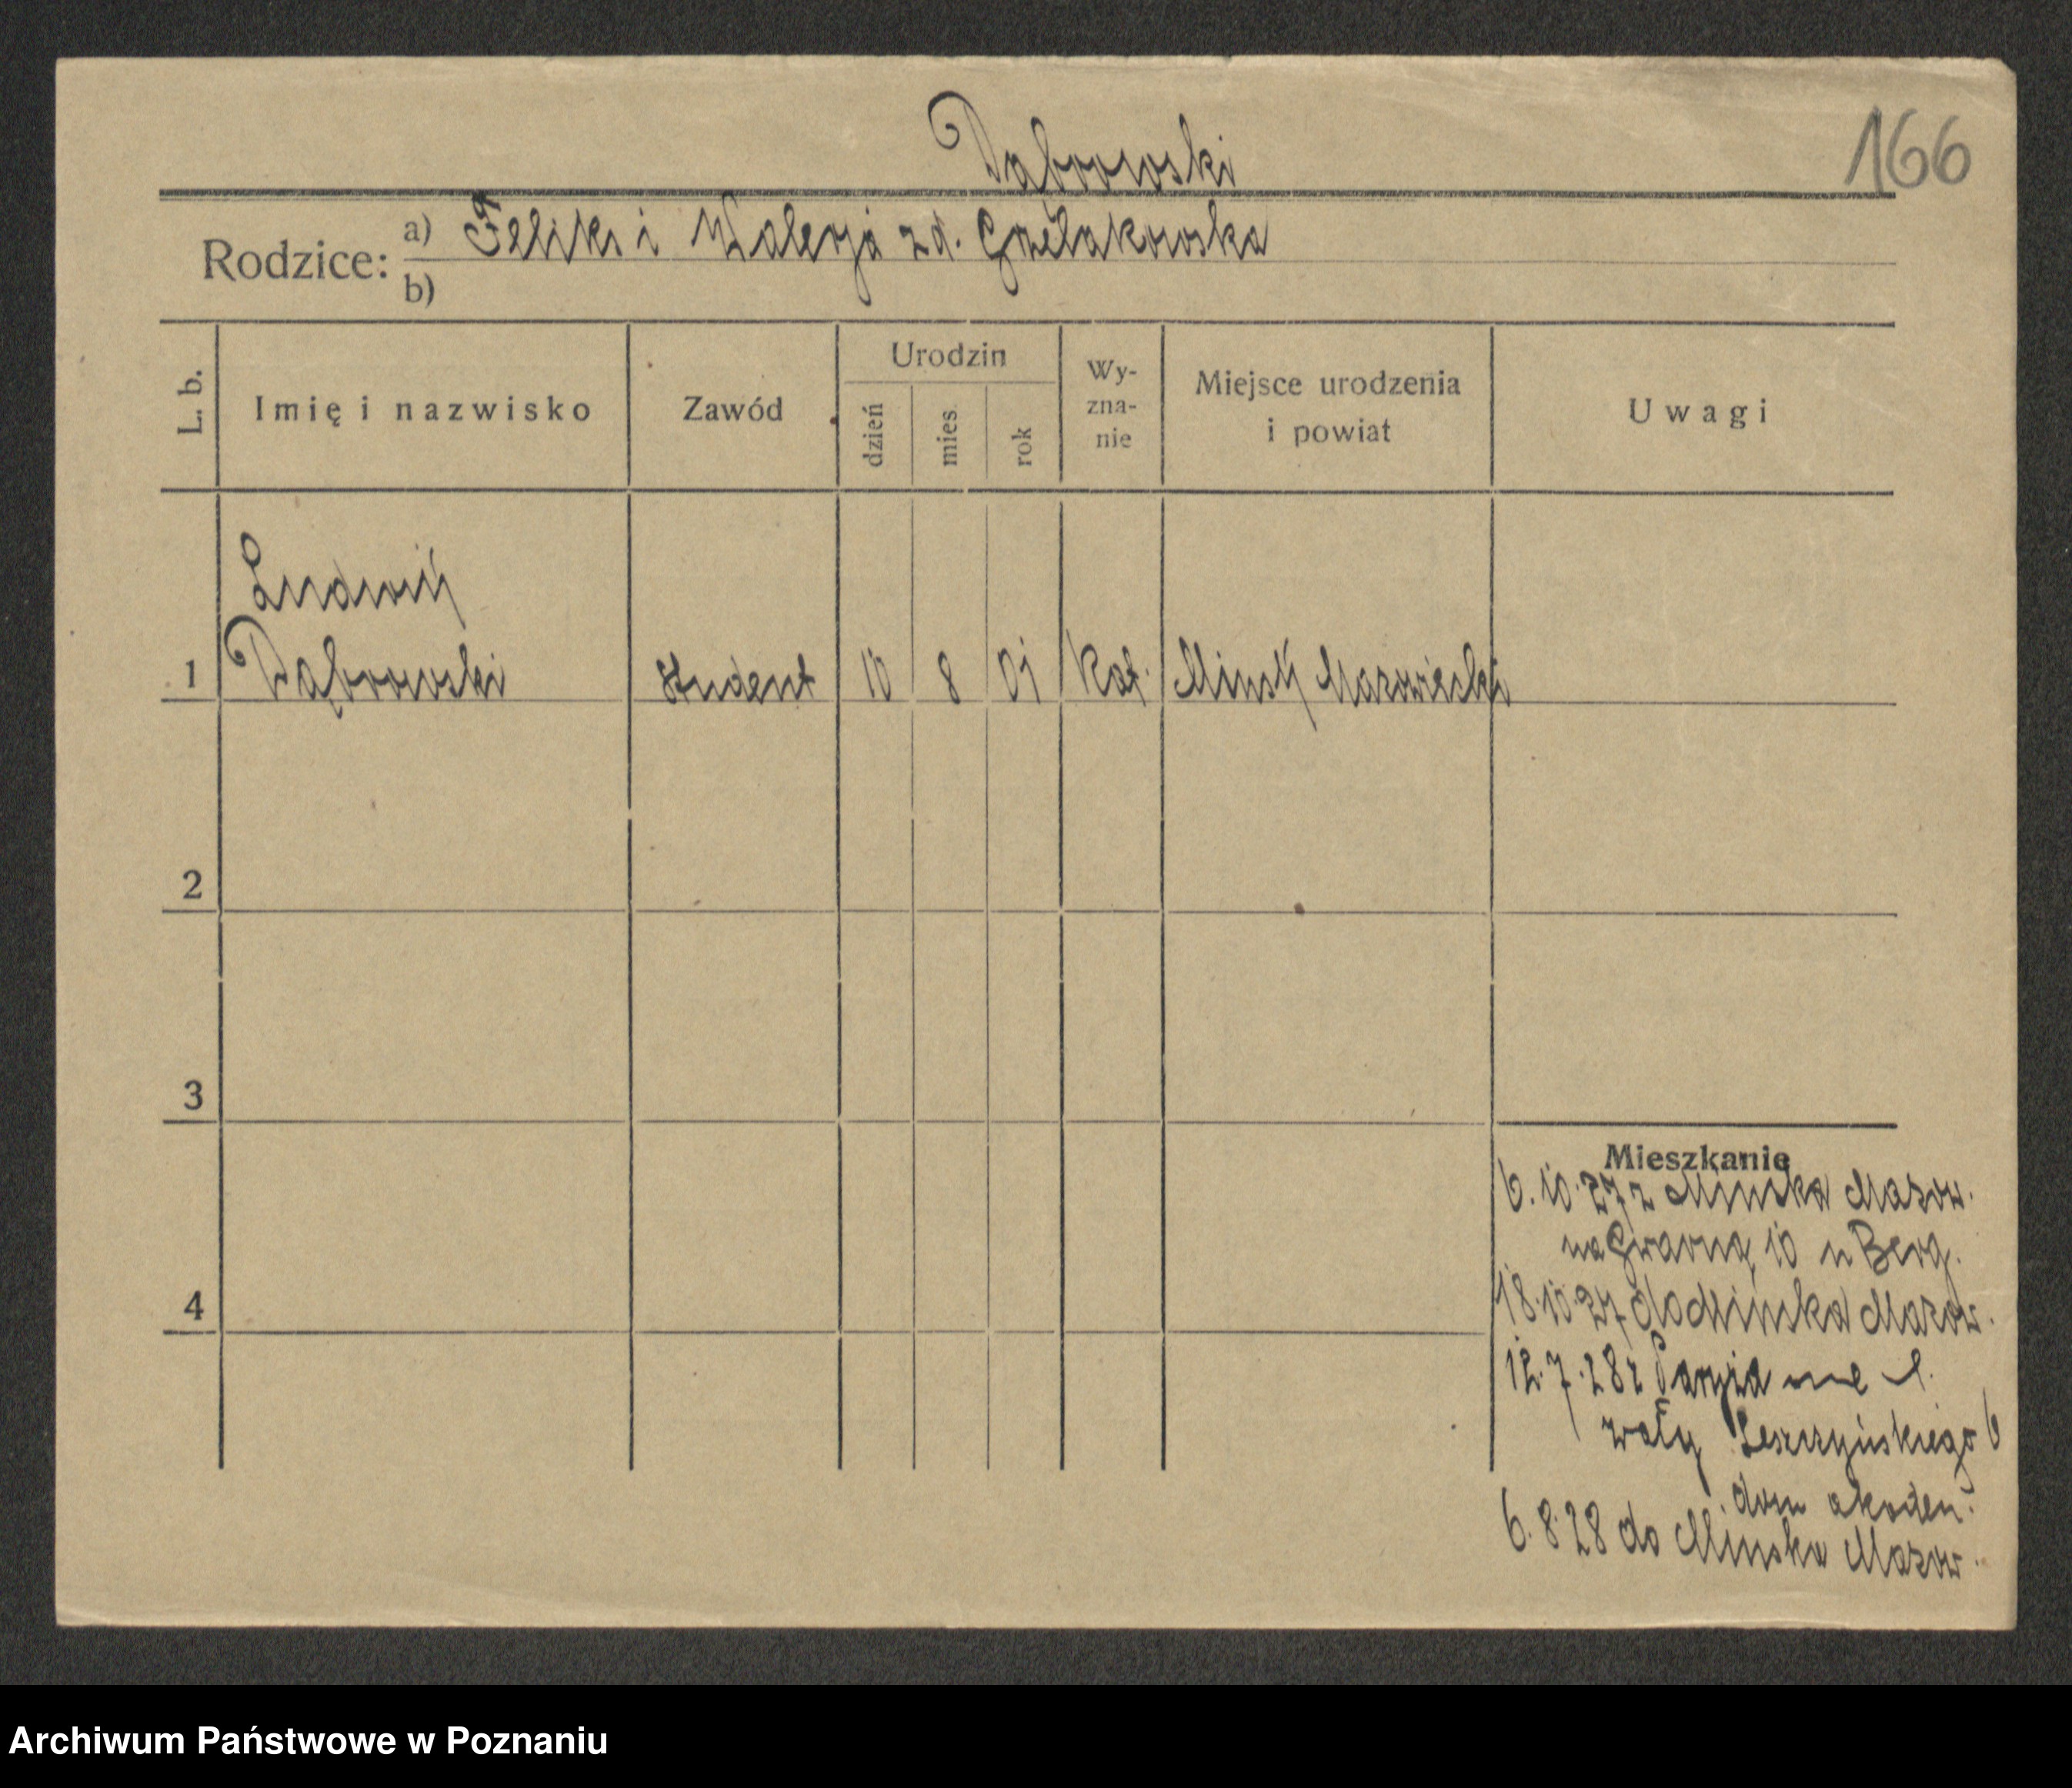 Dąbrowski
166
Rodzice: a) Feliks i Walerja zd. Grzelakowska
b)
L. b.
Imię i nazwisko
Zawód
Urodzin
dzień
mies.
rok
Wy-
zna-
nie
Miejsce urodzenia
i powiat
Uwagi
Ludwik
1 Dąbrowski student 10 8 01 kat. Minsk Mazowiecki
2
3
4
Mieszkanie
6.10.27 z Minska Mazow.
na Gwarną 10 u Berg.
18.10.27 do Minska Mazow.
12.7.28 z
wały Leszczyńskiego 6
dom akadem.
6.8.28 do Minska Mazow.
Archiwum Państwowe w Poznaniu